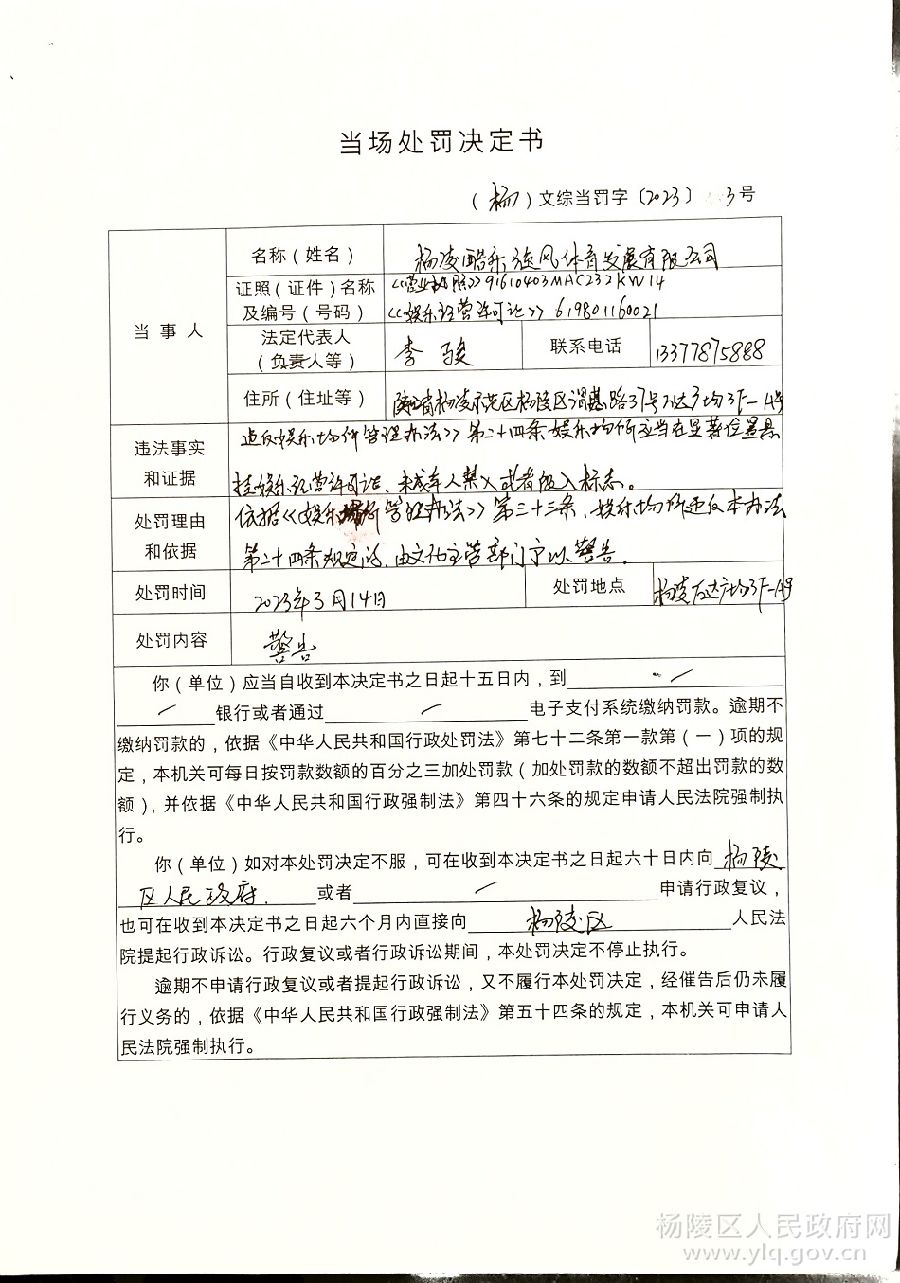 当场处罚决定书
（杨）文综当罚字〔2023〕 3号
当事人
名称（姓名） 杨凌酷乐旋风体育发展有限公司
证照（证件）名称 《营业执照》91610403MAC232KW14
及编号（号码） 《娱乐经营许可证》619801160021
法定代表人
（负责人等） 李骏 联系电话 13377875888
住所（住址等） 陕西省杨凌示范区杨陵区渭惠路37号万达广场3F-A号
违法事实
和证据
违反娱乐场所管理办法》第二十四条娱乐场所应当在显著位置悬
挂娱乐经营许可证、未成年人禁入或者限入标志。
处罚理由
和依据
依据《娱乐场所管理办法》第三十三条，娱乐场所违反本办法
第二十四条规定的，由文化主管部门予以警告。
处罚时间 2023年3月14日 处罚地点 杨凌万达广场3F-A号
处罚内容 警告
你（单位）应当自收到本决定书之日起十五日内，到
银行或者通过 电子支付系统缴纳罚款。逾期不
缴纳罚款的，依据《中华人民共和国行政处罚法》第七十二条第一款第（一）项的规
定，本机关可每日按罚款数额的百分之三加处罚款（加处罚款的数额不超出罚款的数
额），并依据《中华人民共和国行政强制法》第四十六条的规定申请人民法院强制执
行。
你（单位）如对本处罚决定不服，可在收到本决定书之日起六十日内向 杨陵
区人民政府 或者 申请行政复议，
也可在收到本决定书之日起六个月内直接向 杨陵区 人民法
院提起行政诉讼。行政复议或者行政诉讼期间，本处罚决定不停止执行。
逾期不申请行政复议或者提起行政诉讼，又不履行本处罚决定，经催告后仍未履
行义务的，依据《中华人民共和国行政强制法》第五十四条的规定，本机关可申请人
民法院强制执行。
杨陵区人民政府网
www.ylq.gov.cn